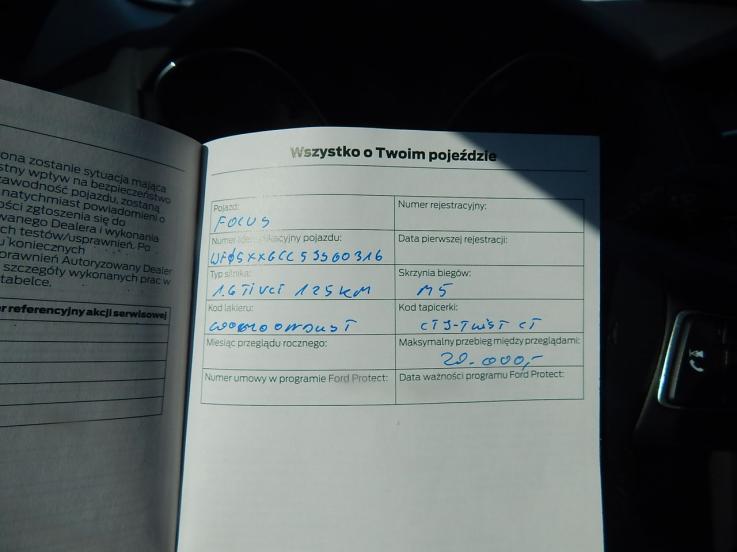 ona zostanie sytuacja mająca
stny wpływ na bezpieczeństwo
zawodność pojazdu, zostaną
natychmiast powiadomieni o
ości zgłoszenia się do
wanego Dealera i wykonania
ch testów/usprawnień. Po
u koniecznych
prawnień Autoryzowany Dealer
szczegóły wykonanych prac w
tabelce.
r referencyjny akcji serwisowej
Wszystko o Twoim pojeździe
Pojazd:
FOCUS
Numer rejestracyjny:
Numer identyfikacyjny pojazdu:
Data pierwszej rejestracji:
Typ silnika:
1.6 Ti VCT 125 KM
Skrzynia biegów:
M5
Kod lakieru:
Kod tapicerki:
Miesiąc przeglądu rocznego:
Maksymalny przebieg między przeglądami:
20.000,-
Numer umowy w programie Ford Protect:
Data ważności programu Ford Protect: